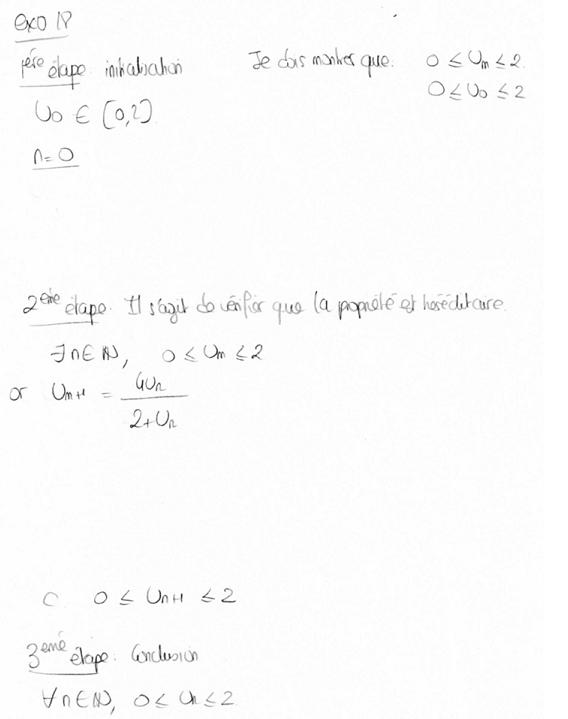 exo N°
1ère étape initialisation Je dois montrer que. 0 ≤ Um ≤ 2.
U0 ∈ [0,2] 0 ≤ U0 ≤ 2
n=0
2ème étape. Il s'agit de vérifier que la propriété est héréditaire.
∃n∈N, 0 ≤ Um ≤ 2
or Um+1 = 4Un / 2+Un
0 ≤ Un+1 ≤ 2
3ème étape. Conclusion
∀n∈N, 0 ≤ Un ≤ 2